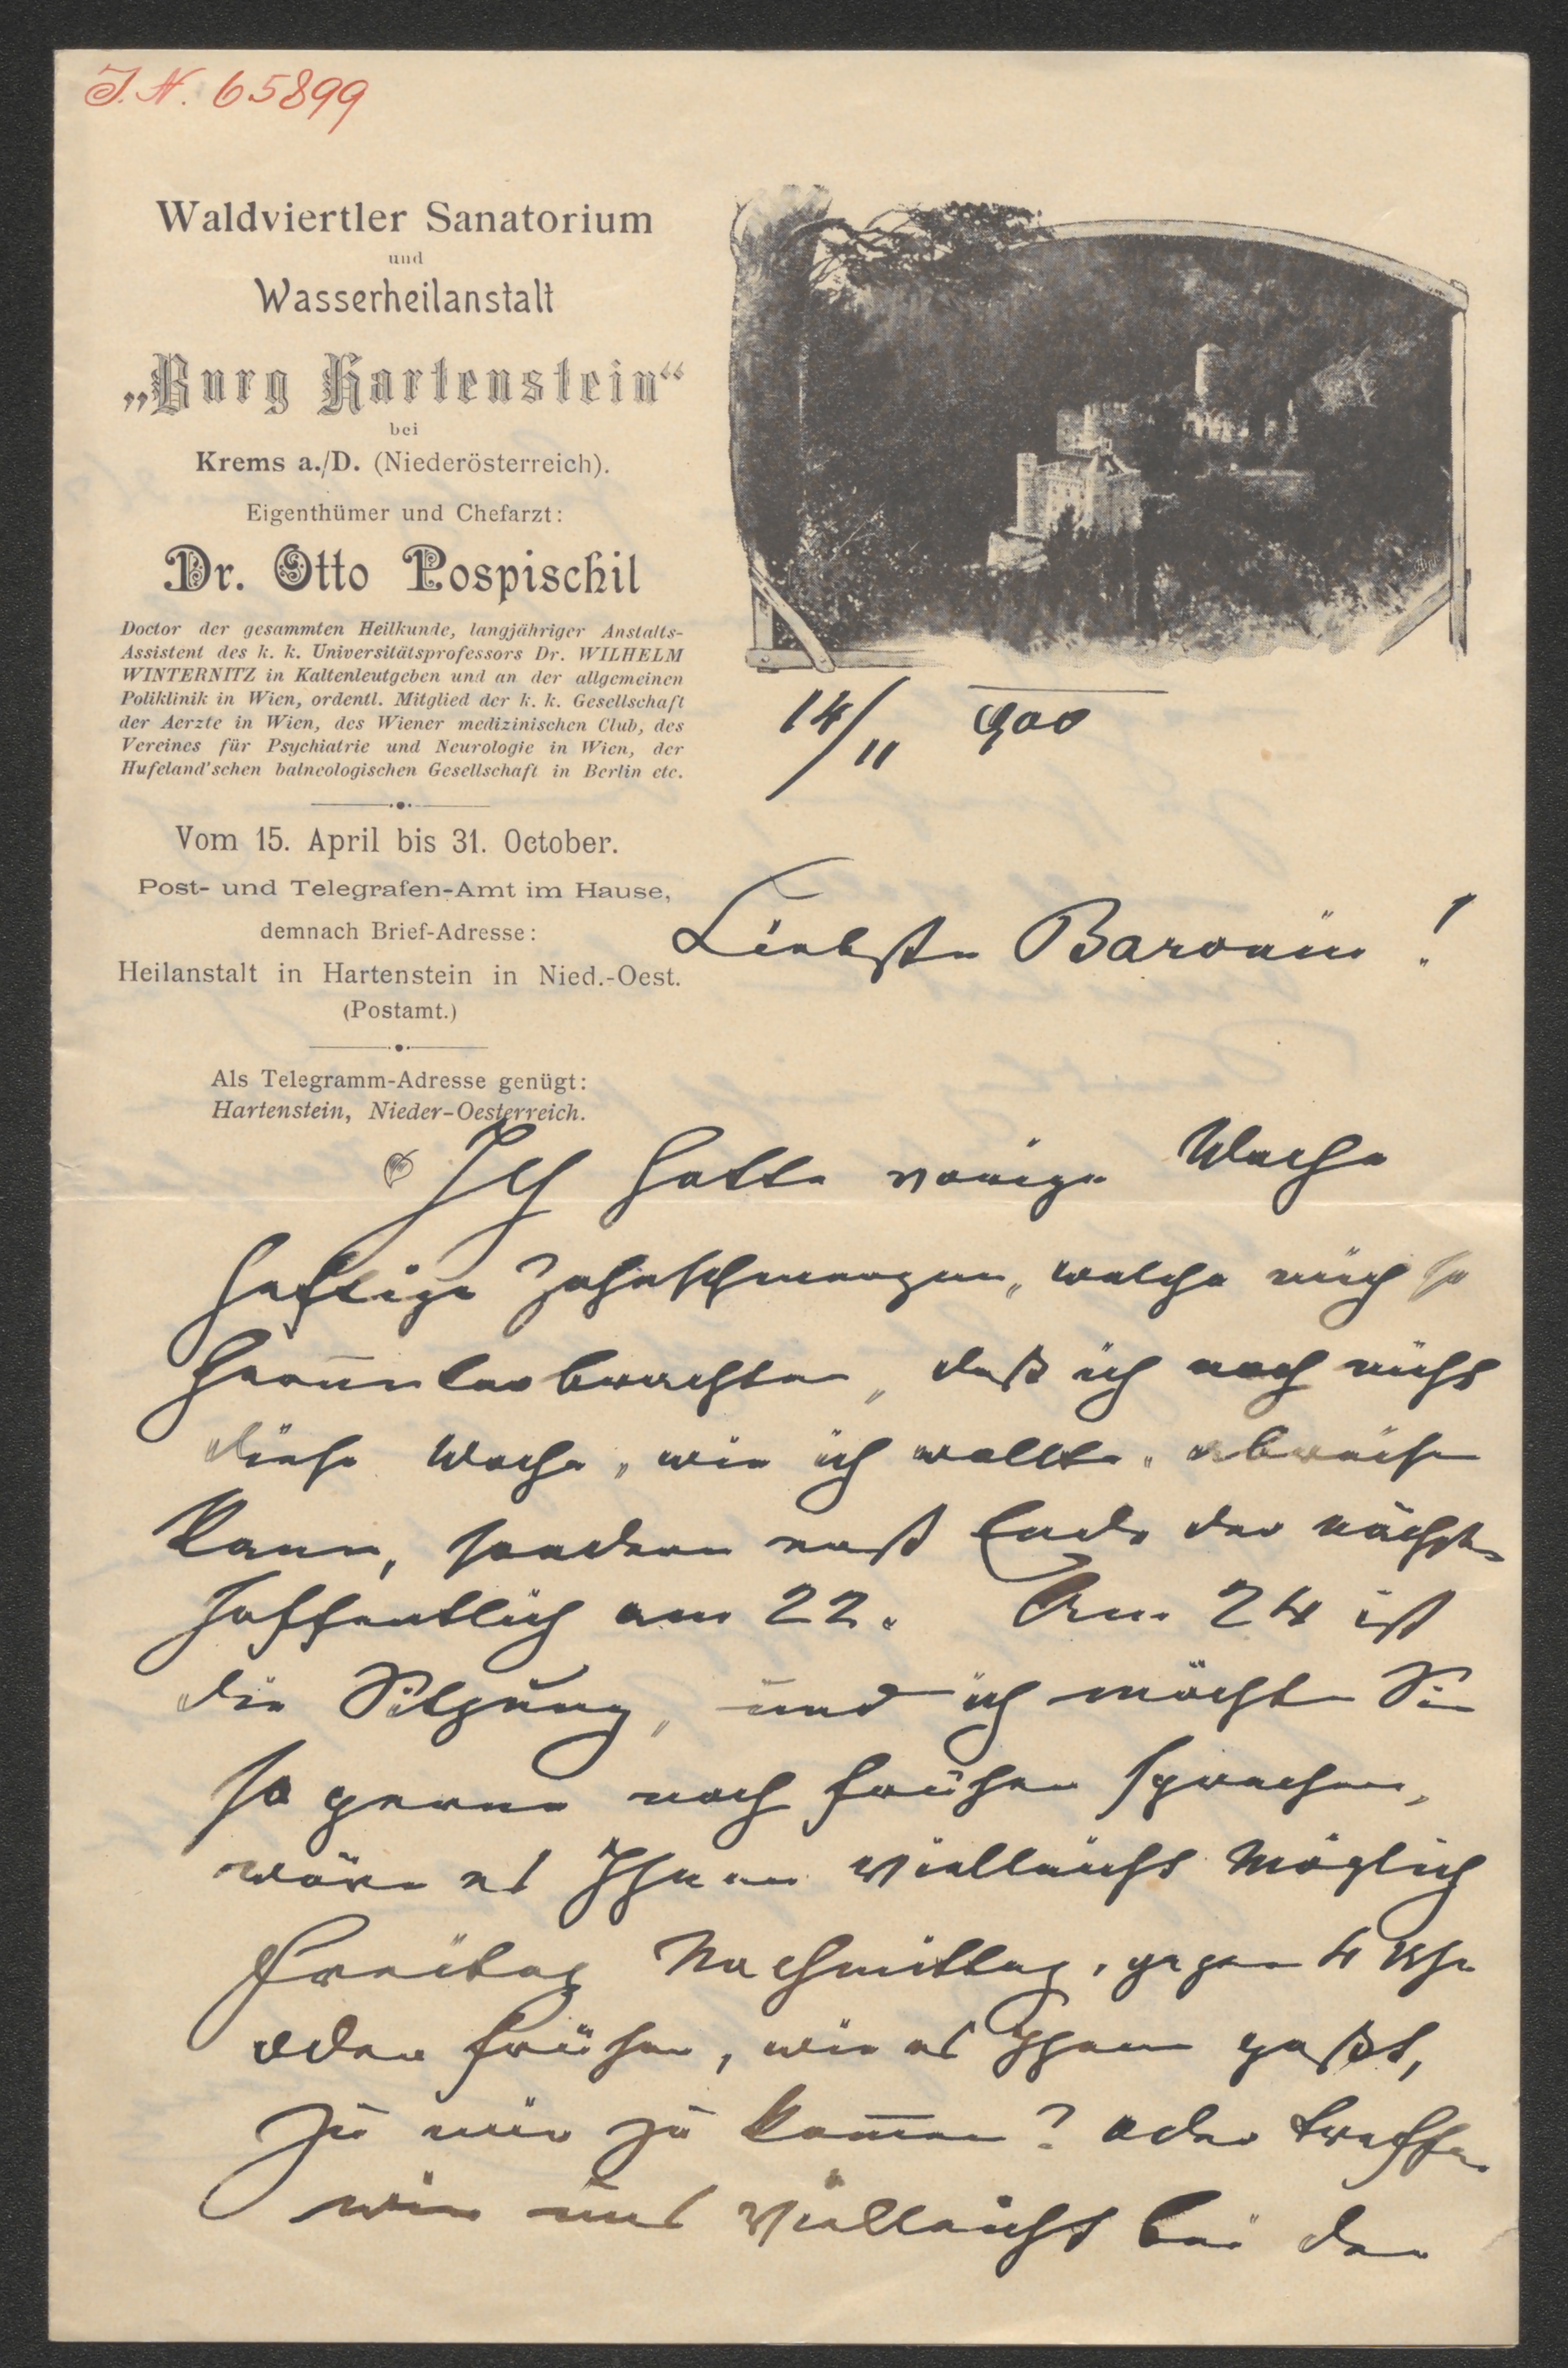 I. N. 65899
Waldviertler Sanatorium
und
Wasserheilanstalt
„Burg Hartenstein“
bei
Krems a./D. (Niederösterreich).
Eigenthümer und Chefarzt:
Dr. Otto Pospischil
Doctor der gesammten Heilkunde, langjähriger Anstalts-
Assistent des k. k. Universitätsprofessors Dr. WILHELM
WINTERNITZ in Kaltenleutgeben und an der allgemeinen
Poliklinik in Wien, ordentl. Mitglied der k. k. Gesellschaft
der Aerzte in Wien, des Wiener medizinischen Club, des
Vereines für Psychiatrie und Neurologie in Wien, der
Hufeland'schen balneologischen Gesellschaft in Berlin etc.
Vom 15. April bis 31. October.
Post- und Telegrafen-Amt im Hause,
demnach Brief-Adresse:
Heilanstalt in Hartenstein in Nied.-Oest.
(Postamt.)
Als Telegramm-Adresse genügt:
Hartenstein, Nieder-Oesterreich.
14/11 900
Liebste Baronin!
Ich hatte vorige Woche
heftige Zahnschmerzen, welche mich so
herunterbrachten, daß ich noch nicht
diese Woche, wie ich wollte, abreisen
kann, sondern erst Ende der nächsten
hoffentlich am 22. Am 24 ist
die Sitzung, und ich möchte Sie
so gerne noch früher sprechen,
wäre es Ihnen vielleicht möglich
Freitag Nachmittag, gegen 4 Uhr
oder früher, wie es Ihnen paßt,
zu mir zu kom̄en? oder treffen
wir uns vielleicht bei der